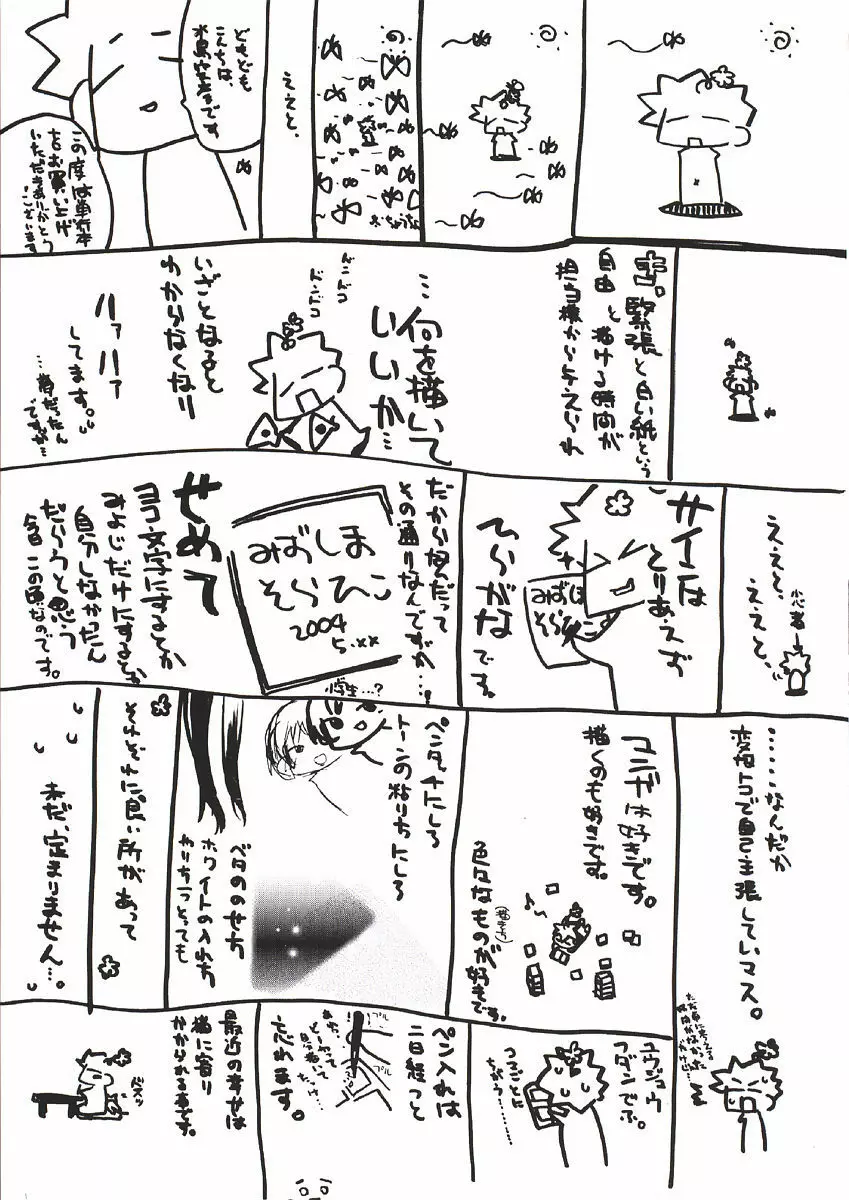 ええと、
どもども
こんちは、
水島空彦です。
この度は単行本
をお買い上げ
いただきありがとう
ございます
緊張と白い紙という
自由と描ける時間が
担当様から与えられ
…何を描いて
いいか…
ドンドコ
ドンドコ
いざとなると
わからなくなり
ハァハァ
してます。
ですが…
ええと、
ええと、
小心者→
サインは
とりあえず
ひらがな
です。
みずしま
そらひこ
だから何だって
その通りなんですが…。
みずしま
そらひこ
2004
5.××
せめて
ヨコ文字にするとか
みよじだけにするとか
自分しなかったん
だろうと思う
今日この頃なのです。
……なんだか
変なトコで自己主張していマス。
マンガは好きです。
描くのも好きです。
色々なものが好きです。
ペンタッチにしろ
トーンの貼り方にしろ
小学生…?
ベタののせ方
ホワイトの入れ方
何ひとつとっても
それぞれに良い所があって
未だ、定まりません…。
ユウジュウ
フダンでぷ。
ペン入れは
二日経つと
忘れます。
プル
プル
最近の幸せは
猫に寄り
かかられる事です。